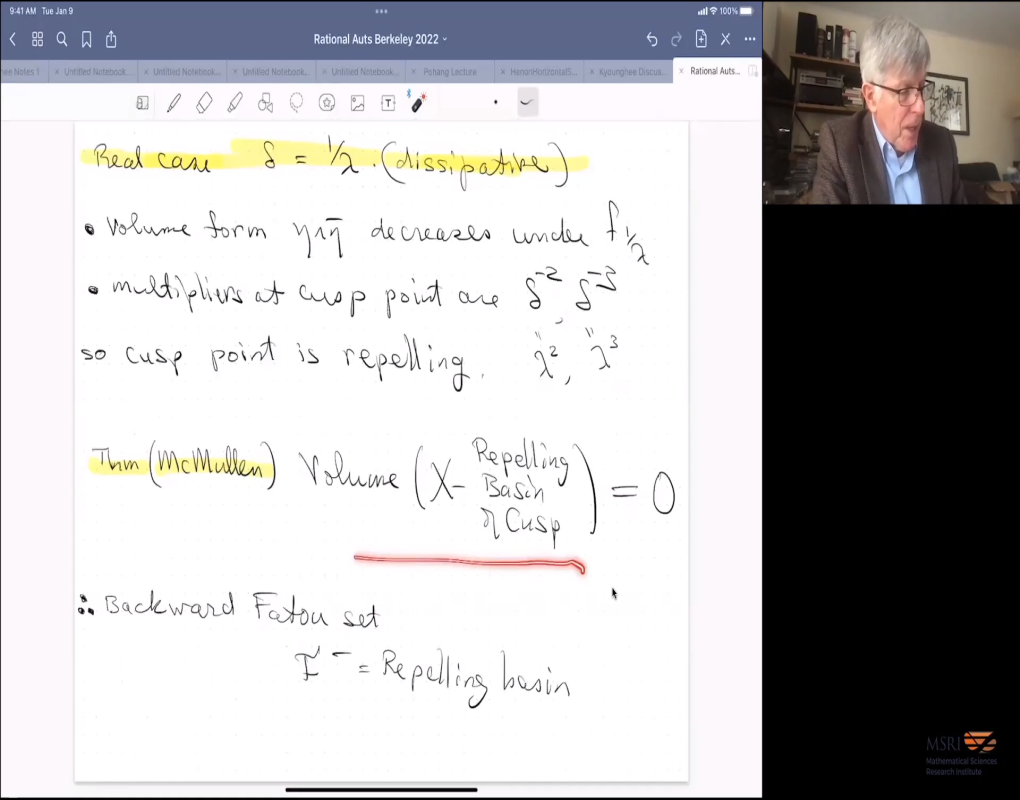 9:41 AM Tue Jan 9
100%
Rational Auts Berkeley 2022
Notes 1
Untitled Notebook...
Untitled Notebook...
Untitled Notebook...
Untitled Notebook...
Pohang Lecture
HenonHorizontalS...
Kyounghee Discus...
Rational Auts...
Real case δ = 1/λ . (dissipative)
• Volume form η∧η̄ decreases under f 1/λ
• multipliers at cusp point are δ⁻², δ⁻³
so cusp point is repelling. λ², λ³
Thm (McMullen) Volume (X - Repelling Basin of Cusp) = 0
∴ Backward Fatou set
F⁻ = Repelling basin
MSRI
Mathematical Sciences
Research Institute